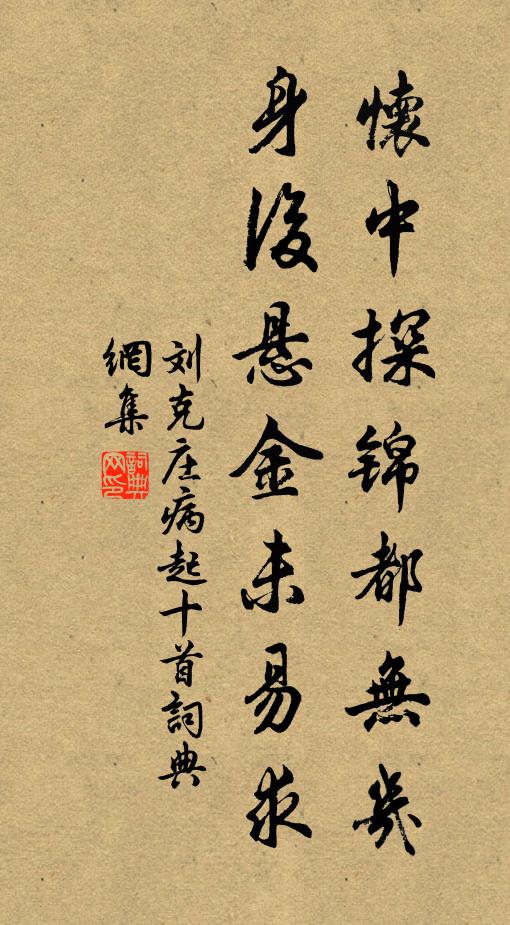 懷中探錦都無幾
身後悬金未易求
刘克庄病起十首詞典
網集
詞典網印